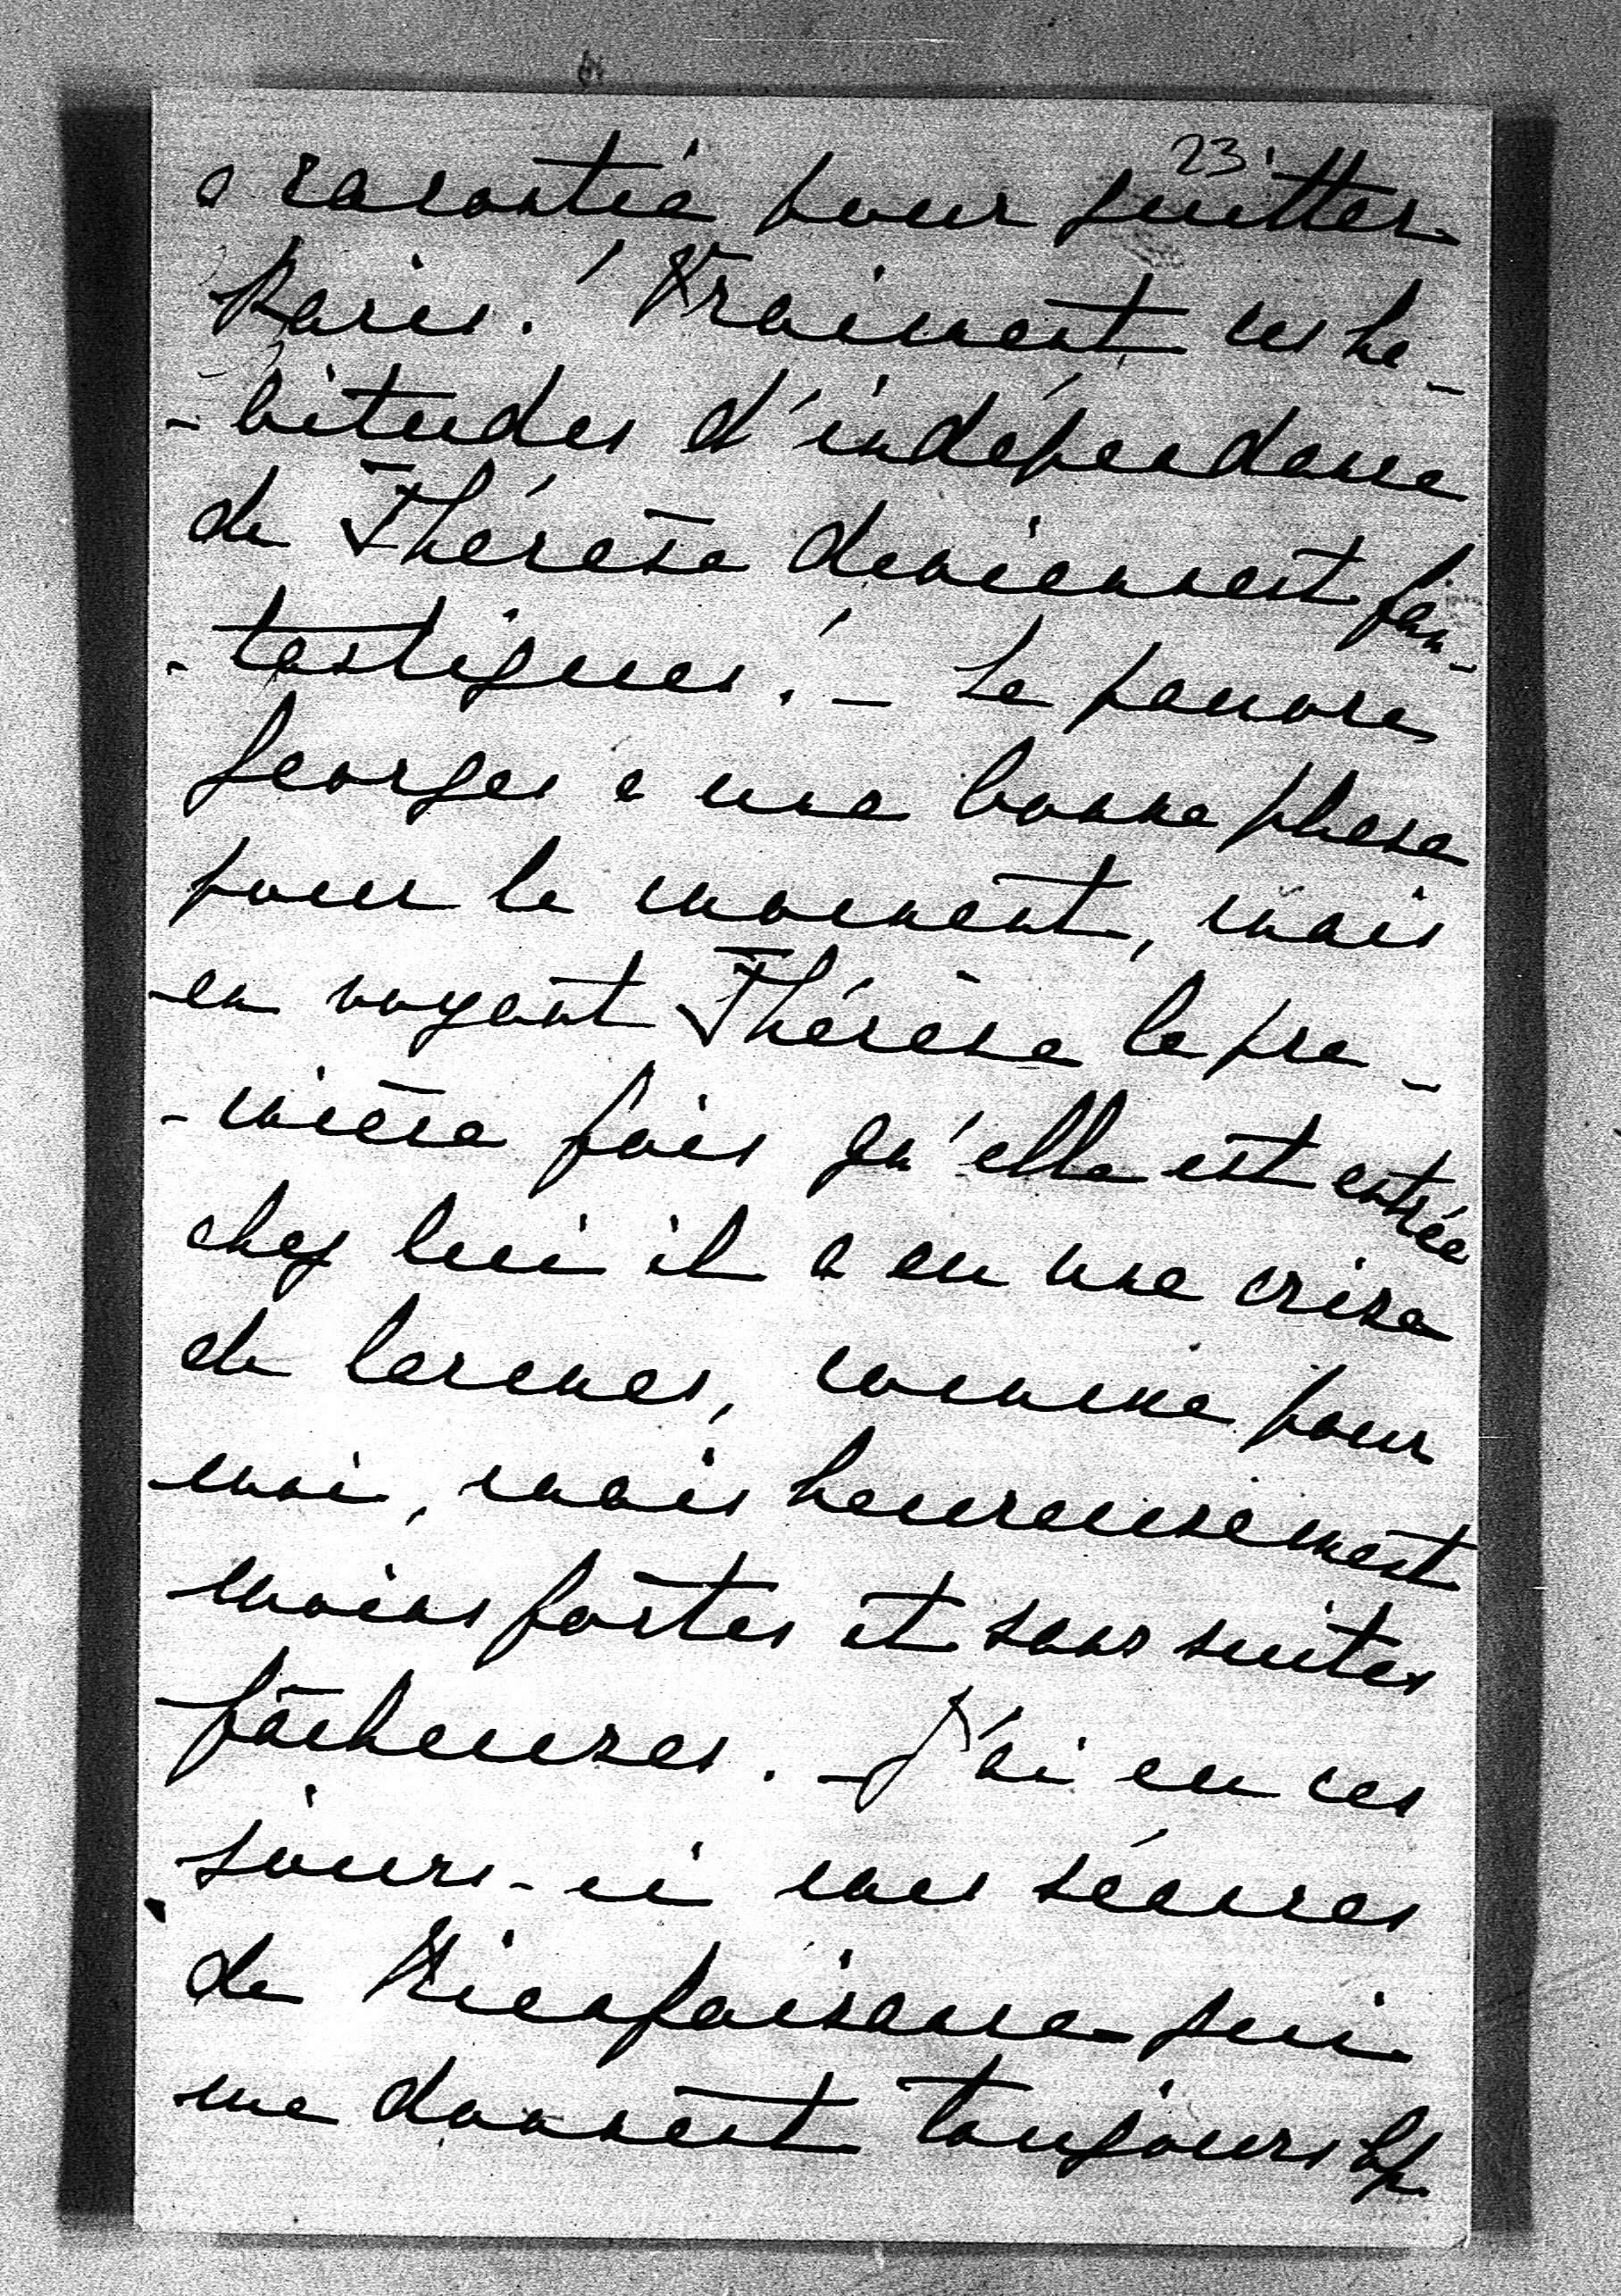 23
a raconté pour quitter
Paris.! Vraiment ces ha-
-bitudes d'indépendance
de Thérèse deviennent fan-
-tastiques! — Le pauvre
Georges a une bonne phase
pour le moment, mais
en voyant Thérèse la pre-
-mière fois qu'elle est entrée
chez lui il a eu une crise
de larmes, comme pour
moi, mais heureusement
moins fortes et sans suites
fâcheuses. — J'ai eu ces
jours-ci mes séances
de Bienfaisance qui
me donnent toujours bp.